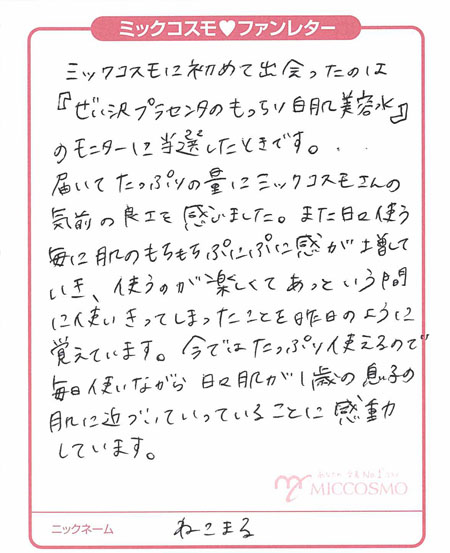 ミックコスモ♥ファンレター
ミックコスモに初めて出会ったのは
『ぜい沢プラセンタのもっちり白肌美容水』
のモニターに当選したときです。..
届いてたっぷりの量にミックコスモさんの
気前の良さを感じました。また日々使う
毎に肌のもちもちぷにぷに感が増して
いき、使うのが楽しくてあっという間
に使いきってしまったことを昨日のように
覚えています。今ではたっぷり使えるので
毎日使いながら日々肌が1歳の息子の
肌に近づいていっていることに感動
しています。
MICCOSMO
ニックネーム ねこまる